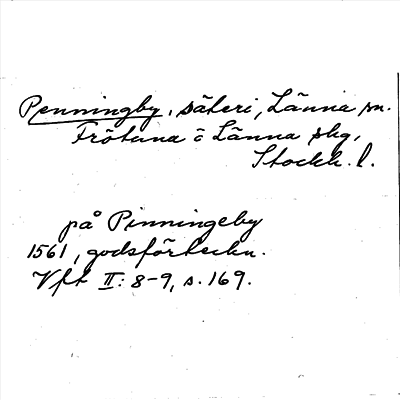 Penningby, säteri, Länna sn.
Frötuna o Länna skg,
Stockh. l.
på Pinningeby
1561, godsförteckn.
Vft II: 8-9, s. 169.